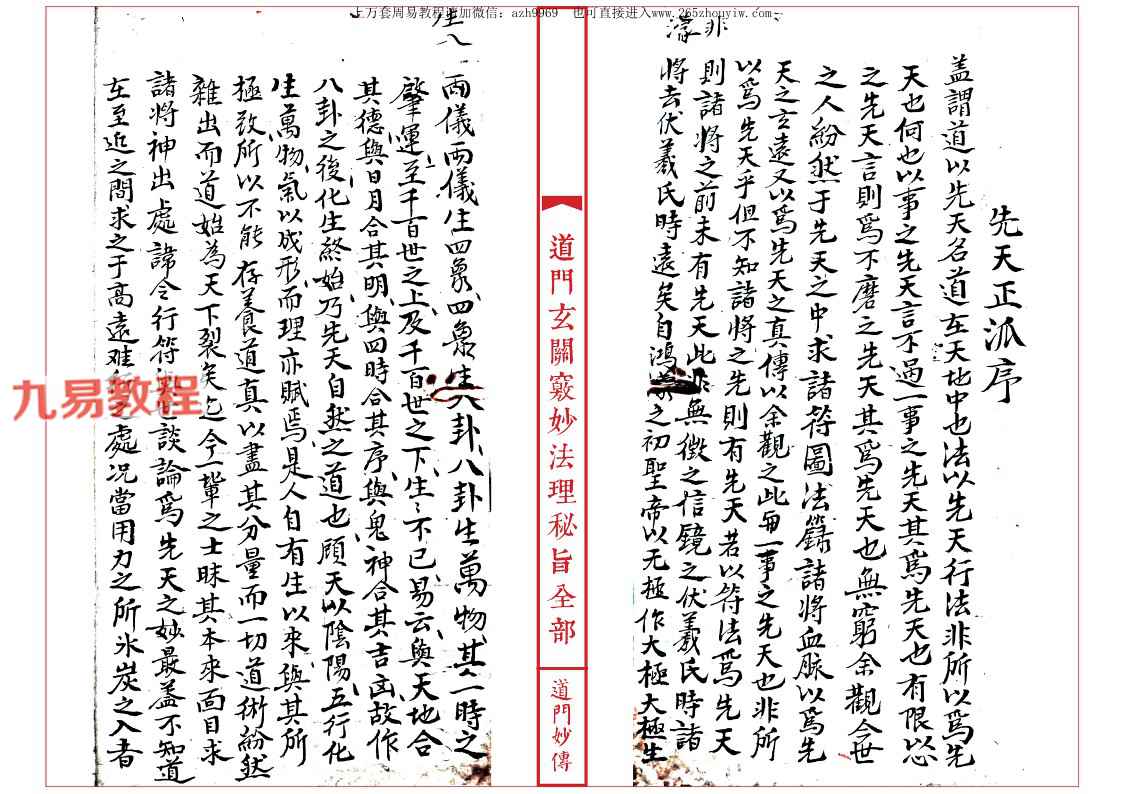 上万套周易教程请加微信：azh9969　也可直接进入www.265zhouyiw.com
非
濛
先天正派序
盖謂道以先天名道在天地中也法以先天行法非所以爲先
天也何也以事之先天言不過一事之先天其爲先天也有限以心
之先天言則爲不磨之先天其爲先天也無窮余觀今世
之人紛然于先天之中求諸符圖法籙諸將血脉以爲先
天之玄遠又以爲先天之真傳以余觀之此一事之先天也非所
以爲先天乎但不知諸將之先則有先天若以符法爲先天
則諸將之前未有先天此非無徵之信鏡之伏羲氏時諸
將去伏羲氏時遠矣自鴻濛之初聖帝以无極作大極大極生
道門玄關竅妙法理秘旨全部
道門妙傳
生八
兩儀兩儀生四象四象生八卦八卦生萬物其一時之
肇運至千百世之上及千百世之下生〻不已易云與天地合
其德與日月合其明與四時合其序與鬼神合其吉凶故作
八卦之後化生終始乃先天自然之道也顧天以陰陽五行化
生萬物氣以成形而理亦賦焉是人自有生以來與其所
極致所以不能存養道真以盡其分量而一切道術紛然
雜出而道始為天下裂矣迄今一輩之士昧其本來面目求
諸將神出處諱令行符談論爲先天之妙最盖不知道
在至近之間求之于高遠难之處况當用力之所氷炭之入者
九易教程